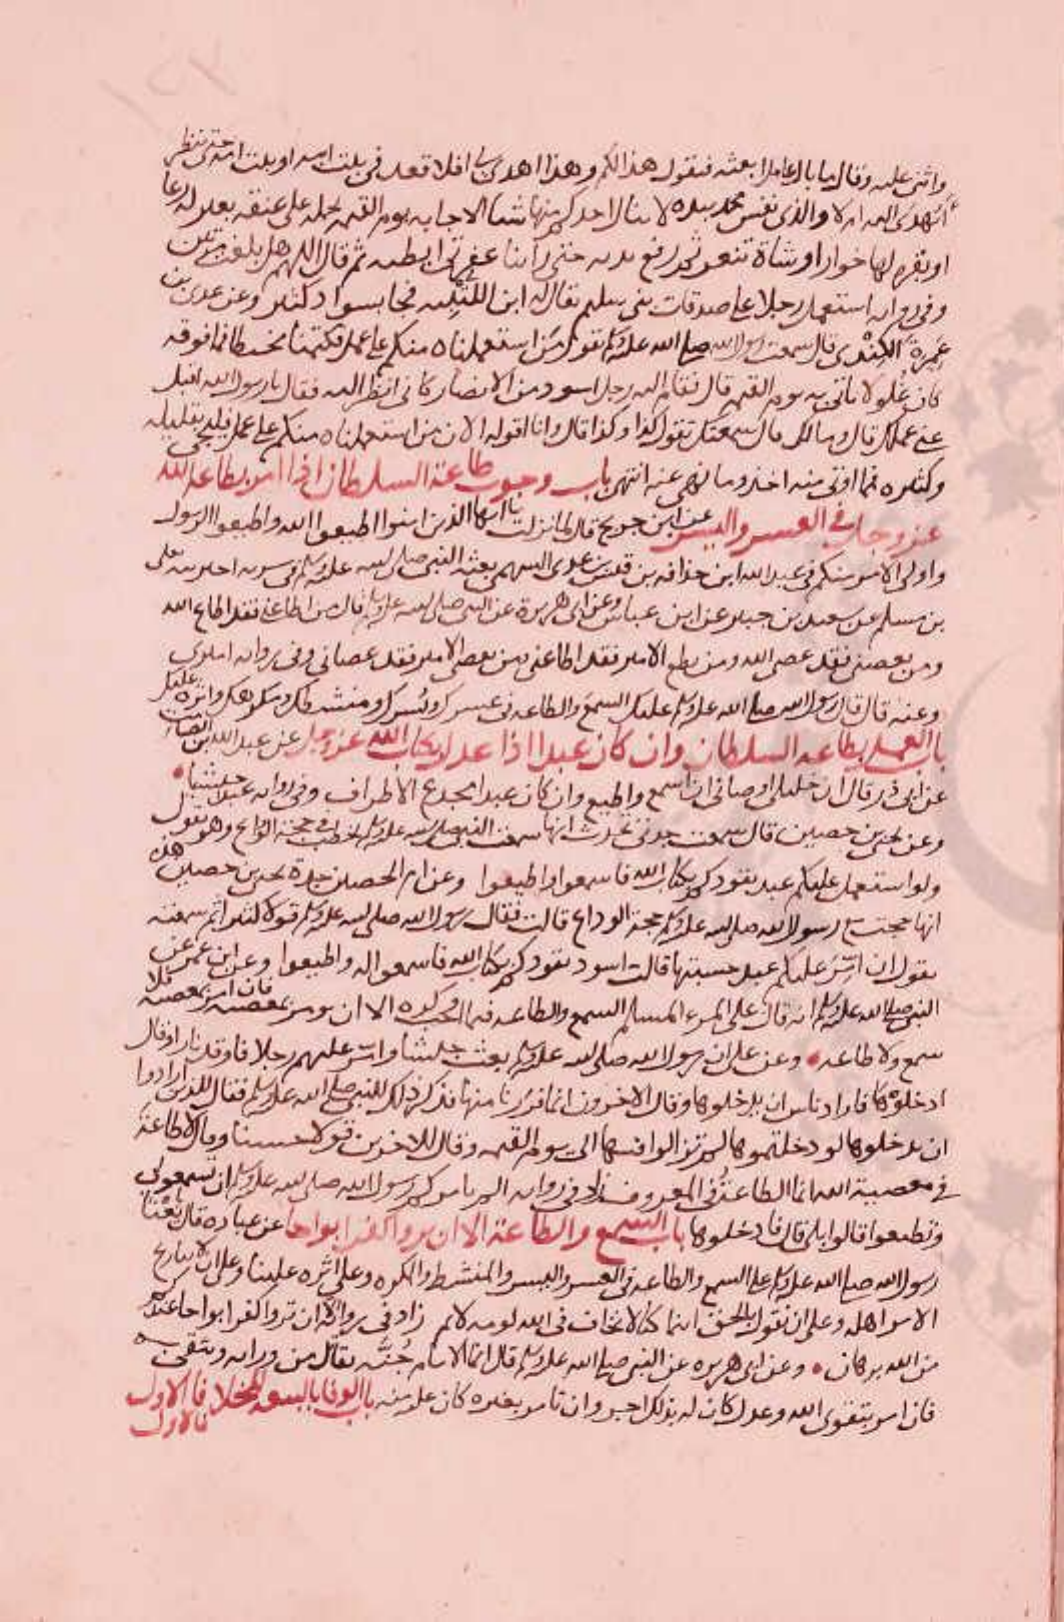 واثنى عليه وقال ما بال عامل ابعثه فيقول هذا لكم وهذا اهدي لي افلا قعد في بيت ابيه او بيت امه حتى ينظر
ايهدى اليه ام لا والذي نفس محمد بيده لا ينال احدكم منها شيا الا جا به يوم القيمه يحمله على عنقه بعير له رغا
او بقره لها خوار او شاة تيعر ثم رفع يديه حتى راينا عفرتي ابطيه ثم قال اللهم هل بلغت مرتين
وفي روايه استعمل رجلا على صدقات بني سليم يقال له ابن اللتبيه فجا بسواد كثير وعن عدي بن
عميرة الكندي قال سمعت رسول الله صلى الله عليه وسلم يقول من استعملناه منكم على عمل فكتمنا مخيطا فما فوقه
كان غلولا ياتي به يوم القيمه قال فقام اليه رجل اسود من الانصار كاني انظر اليه فقال يا رسول الله اقبل
عني عملك قال وما لك قال سمعتك تقول كذا وكذا قال وانا اقوله الان من استعملناه منكم على عمل فليجي بقليله
وكثيره فما اوتي منه اخذ وما نهي عنه انتهى باب وجوب طاعة السلطان اذا امر بطاعة الله
عز وجل في العسر واليسر عن ابن جريج قال لما نزلت يا ايها الذين امنوا اطيعوا الله واطيعوا الرسول
واولي الامر منكم في عبد الله ابن حذافه بن قيس بن عدي السهمي بعثه النبي صلى الله عليه وسلم في سريه اخبرنيه يعلى
بن مسلم عن سعيد بن جبير عن ابن عباس وعن ابي هريرة عن النبي صلى الله عليه وسلم قال من اطاعني فقد اطاع الله
ومن يعصني فقد عصى الله ومن يطع الامير فقد اطاعني ومن يعصى الامير فقد عصاني وفي روايه اميري
وعنه قال قال رسول الله صلى الله عليه وسلم عليك السمع والطاعه في عسرك ويسرك ومنشطك ومكرهك واثره عليك
باب العمل بطاعه السلطان وان كان عبدا اذا عدل بكتاب الله عز وجل عن عبد الله بن الصامت
عن ابي ذر قال ان خليلي اوصاني ان اسمع واطيع وان كان عبدا مجدع الاطراف وفي روايه عبدا حبشيا
وعن يحيى بن حصين قال سمعت جدتي تحدث انها سمعت النبي صلى الله عليه وسلم يخطب في حجة الوداع وهو يقول
ولو استعمل عليكم عبد يقودكم بكتاب الله فاسمعوا واطيعوا وعن ام الحصين جدة يحيى بن حصين هذه
انها حجت مع رسول الله صلى الله عليه وسلم حجة الوداع قالت فقال رسول الله صلى الله عليه وسلم قولا كثيرا ثم سمعته
يقول ان امر عليكم عبد حسبتها قالت اسود يقودكم بكتاب الله فاسمعوا له واطيعوا وعن ابن عمر عن
النبي صلى الله عليه وسلم انه قال على المرء المسلم السمع والطاعه فيما احب وكره الا ان يومر بمعصيه فان امر بمعصيه فلا
سمع ولا طاعه وعن علي ان رسول الله صلى الله عليه وسلم بعث جيشا وامر عليهم رجلا فاوقد نارا وقال
ادخلوها فاراد ناس ان يدخلوها وقال الاخرون انما فررنا منها فذكر ذلك للنبي صلى الله عليه وسلم فقال للذين ارادوا
ان يدخلوها لو دخلتموها لم تزالوا فيها الى يوم القيمه وقال للاخرين قولا حسنا وقال لا طاعة
في معصية الله انما الطاعة في المعروف زاد في روايه الم يامركم رسول الله صلى الله عليه وسلم ان تسمعوا لي
وتطيعوا قالوا بلى قال فادخلوها باب السمع والطاعة الا ان يروا كفرا بواحا عن عباده قال بايعنا
رسول الله صلى الله عليه وسلم على السمع والطاعه في العسر واليسر والمنشط والمكره وعلى اثره علينا وعلى ان لا ننازع
الامر اهله وعلى ان نقول بالحق اينما كنا لا نخاف في الله لومه لايم زاد في روايه الا ان تروا كفرا بواحا عندكم
من الله برهان وعن ابي هريره عن النبي صلى الله عليه وسلم قال انما الامام جنة يقاتل من ورايه ويتقى به
فان امر بتقوى الله وعدل كان له بذلك اجر وان يامر بغيره كان عليه منه باب الوفا ببيعه الخلفا الاول
فالاول